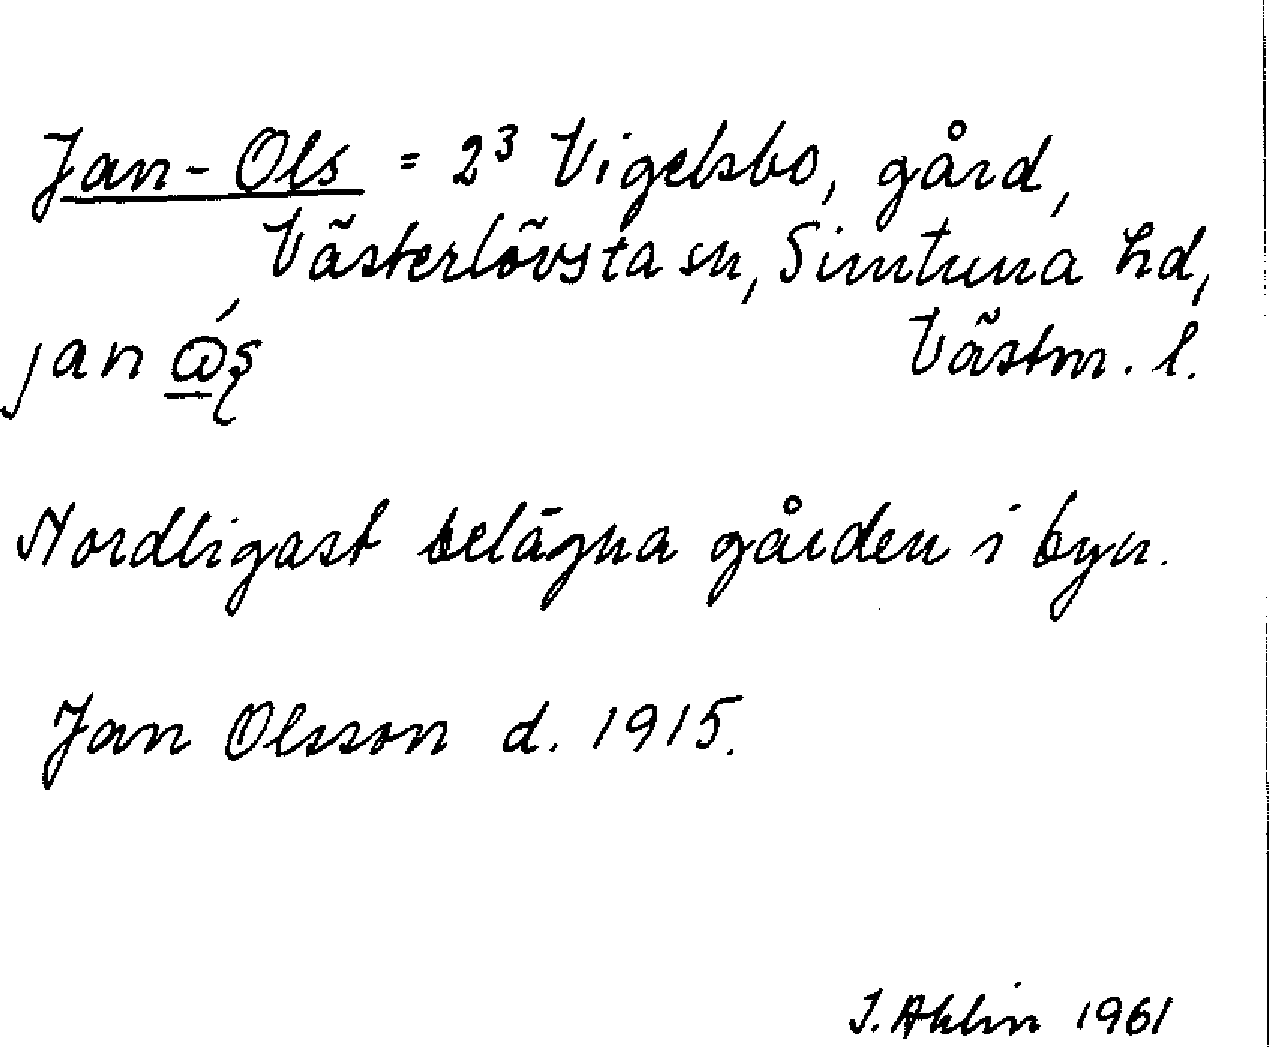 Jan-Ols = 2³ Vigelsbo, gård,
Västerlövsta sn, Simtuna hd,
Västm. l.
jan
Nordligast belägna gården i byn.
Jan Olsson d. 1915.
J. Ahlin 1961